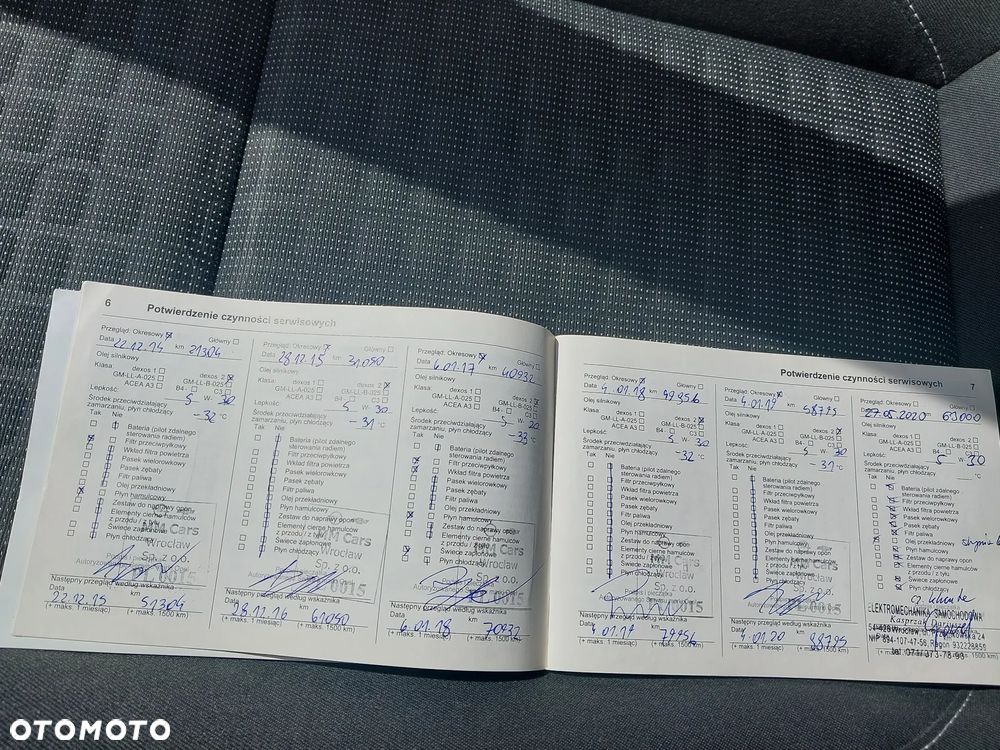 6 Potwierdzenie czynności serwisowych
Przegląd: Okresowy Główny
Data 22.12.14 km 21304
Olej silnikowy
Klasa: dexos 1 dexos 2
GM-LL-A-025 GM-LL-B-025
ACEA A3 B4 - C3
Lepkość: 5 W- 30
Środek przeciwdziałający
zamarzaniu, płyn chłodzący -32 °C
Tak Nie
Bateria (pilot zdalnego
sterowania radiem)
Filtr przeciwpyłkowy
Wkład filtra powietrza
Pasek wielorowkowy
Pasek zębaty
Filtr paliwa
Olej przekładniowy
Płyn hamulcowy
Zestaw do naprawy opon
Elementy cierne hamulców
z przodu / z tyłu
Świece zapłonowe
Płyn chłodzący
MM Cars
Wrocław
Sp. z o.o.
0015
Następny przegląd według wskaźnika
Data 22.12.15 km 51304
(+ maks. 1 miesiąc) (+ maks. 1500 km)
Przegląd: Okresowy Główny
Data 28.12.15 km 31050
Olej silnikowy
Klasa: dexos 1 dexos 2
GM-LL-A-025 GM-LL-B-025
ACEA A3 B4 - C3
Lepkość: 5 W- 30
Środek przeciwdziałający
zamarzaniu, płyn chłodzący -31 °C
Tak Nie
Bateria (pilot zdalnego
sterowania radiem)
Filtr przeciwpyłkowy
Wkład filtra powietrza
Pasek wielorowkowy
Pasek zębaty
Filtr paliwa
Olej przekładniowy
Płyn hamulcowy
Zestaw do naprawy opon
Elementy cierne hamulców
z przodu / z tyłu
Świece zapłonowe
Płyn chłodzący
MM Cars
Wrocław
Sp. z o.o.
0015
Następny przegląd według wskaźnika
Data 28.12.16 km 61050
(+ maks. 1 miesiąc) (+ maks. 1500 km)
Przegląd: Okresowy Główny
Data 6.01.17 km 40932
Olej silnikowy
Klasa: dexos 1 dexos 2
GM-LL-A-025 GM-LL-B-025
ACEA A3 B4 - C3
Lepkość: 5 W- 30
Środek przeciwdziałający
zamarzaniu, płyn chłodzący -33 °C
Tak Nie
Bateria (pilot zdalnego
sterowania radiem)
Filtr przeciwpyłkowy
Wkład filtra powietrza
Pasek wielorowkowy
Pasek zębaty
Filtr paliwa
Olej przekładniowy
Płyn hamulcowy
Zestaw do naprawy opon
Elementy cierne hamulców
z przodu / z tyłu
Świece zapłonowe
Płyn chłodzący
MM Cars
Wrocław
Sp. z o.o.
0015
Następny przegląd według wskaźnika
Data 6.01.18 km 70932
(+ maks. 1 miesiąc) (+ maks. 1500 km)
Potwierdzenie czynności serwisowych 7
Przegląd: Okresowy Główny
Data 4.01.18 km 49956
Olej silnikowy
Klasa: dexos 1 dexos 2
GM-LL-A-025 GM-LL-B-025
ACEA A3 B4 - C3
Lepkość: 5 W- 30
Środek przeciwdziałający
zamarzaniu, płyn chłodzący -32 °C
Tak Nie
Bateria (pilot zdalnego
sterowania radiem)
Filtr przeciwpyłkowy
Wkład filtra powietrza
Pasek wielorowkowy
Pasek zębaty
Filtr paliwa
Olej przekładniowy
Płyn hamulcowy
Zestaw do naprawy opon
Elementy cierne hamulców
z przodu / z tyłu
Świece zapłonowe
Płyn chłodzący
MM Cars
Wrocław
0015
Następny przegląd według wskaźnika
Data 4.01.19 km 79956
(+ maks. 1 miesiąc) (+ maks. 1500 km)
Przegląd: Okresowy Główny
Data 4.01.19 km 58795
Olej silnikowy
Klasa: dexos 1 dexos 2
GM-LL-A-025 GM-LL-B-025
ACEA A3 B4 - C3
Lepkość: 5 W- 30
Środek przeciwdziałający
zamarzaniu, płyn chłodzący -31 °C
Tak Nie
Bateria (pilot zdalnego
sterowania radiem)
Filtr przeciwpyłkowy
Wkład filtra powietrza
Pasek wielorowkowy
Pasek zębaty
Filtr paliwa
Olej przekładniowy
Płyn hamulcowy
Zestaw do naprawy opon
Elementy cierne hamulców
z przodu / z tyłu
Świece zapłonowe
Płyn chłodzący
0015
Następny przegląd według wskaźnika
Data 4.01.20 km 88795
(+ maks. 1 miesiąc) (+ maks. 1500 km)
Przegląd: Okresowy Główny
Data 27.05.2020 63000
Olej silnikowy
Klasa: dexos 1 dexos 2
GM-LL-A-025 GM-LL-B-025
ACEA A3 B4 - C3
Lepkość: 5 W- 30
Środek przeciwdziałający
zamarzaniu, płyn chłodzący °C
Tak Nie
Bateria (pilot zdalnego
sterowania radiem)
Filtr przeciwpyłkowy
Wkład filtra powietrza
Pasek wielorowkowy
Pasek zębaty
Filtr paliwa
Olej przekładniowy
Płyn hamulcowy
Zestaw do naprawy opon
Elementy cierne hamulców
z przodu / z tyłu
Świece zapłonowe
Płyn chłodzący
ELEKTROMECHANIKA SAMOCHODOWA
Kasprzak
Wrocław, 24
NIP 894-107-47-56, Regon 932228850
tel. 071/373-78-93
OTOMOTO